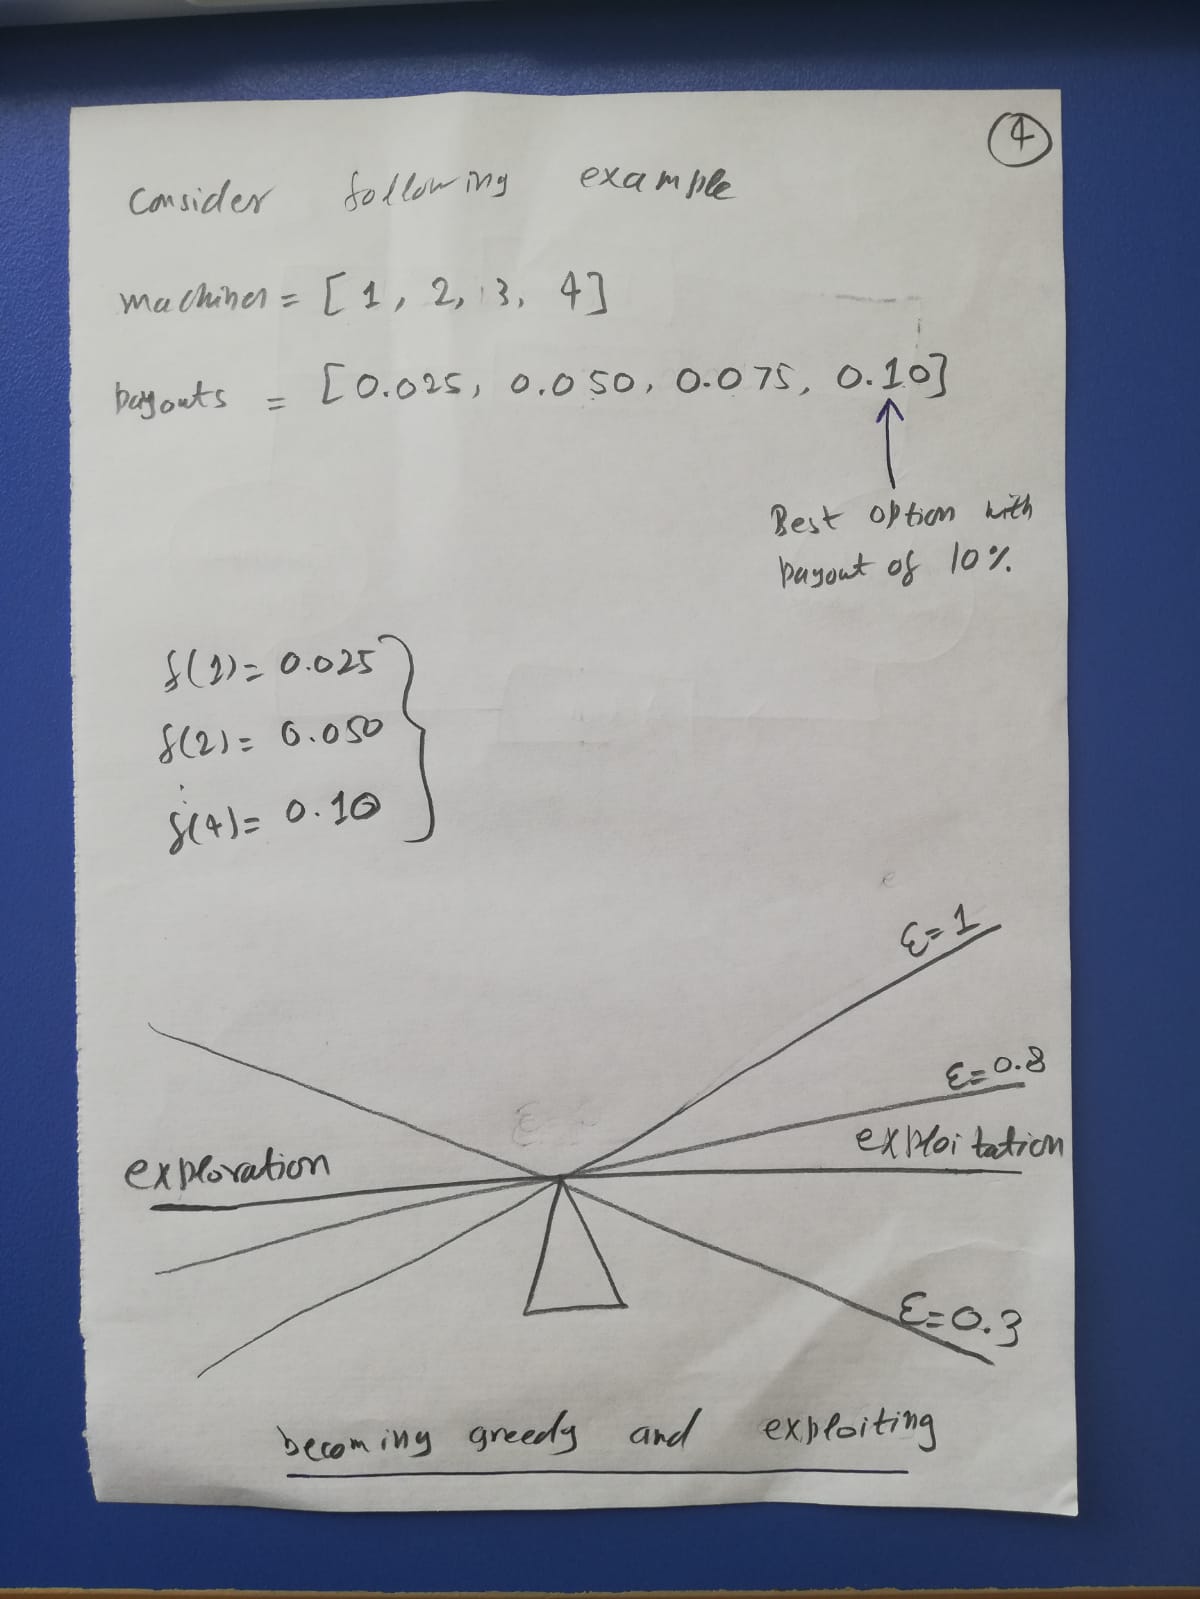 4
Consider following example
machines = [ 1, 2, 3, 4 ]
payouts = [ 0.025, 0.050, 0.075, 0.10 ]
Best option with
payout of 10%
f(1) = 0.025
f(2) = 0.050
:
f(4) = 0.10
ε = 1
ε = 0.8
exploration
exploitation
ε = 0.3
becoming greedy and exploiting